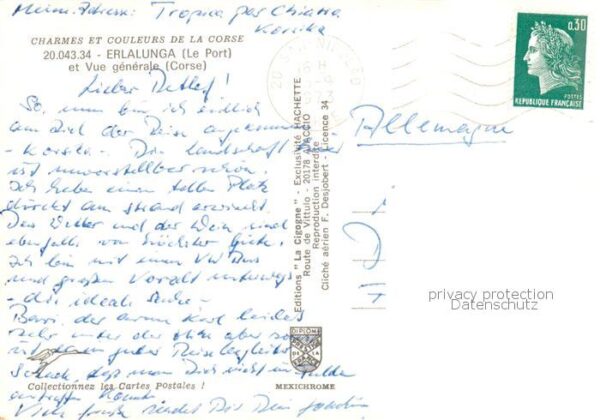 Meine Adresse: Tropica per Chiatra
Korsika
CHARMES ET COULEURS DE LA CORSE
20.043.34 - ERLALUNGA (Le Port)
et Vue générale (Corse)
Lieber Detlef!
So, nun bin ich endlich
am Ziel der Reise angekommen
- Korsika. Die Landschaft hier
ist unvorstellbar schön.
Ich habe einen tollen Platz
direkt am Strand erwischt
Das Wetter und der Wein sind
ebenfalls von höchster Güte.
Ich bin mit einem VW Bus
und großem Vorzelt unterwegs
- die ideale Sache -
der arme Kerl leidet
sehr unter der Hitze aber sonst
ist ein guter Reisebegleiter
Schade, daß man Dich nicht in
Viele Grüße sendet Dir Dein Joachim
Collectionnez les Cartes Postales !
Editions "La Cigogne" - Exclusivité HACHETTE
Route de Vittulo - 20178 AJACCIO
Reproduction interdite
Cliché aérien F. Desjobert - Licence 34
DIPLOM
DE LA
MEXICHROME
0,30
POSTES
REPUBLIQUE FRANÇAISE
Allemagne
privacy protection
Datenschutz